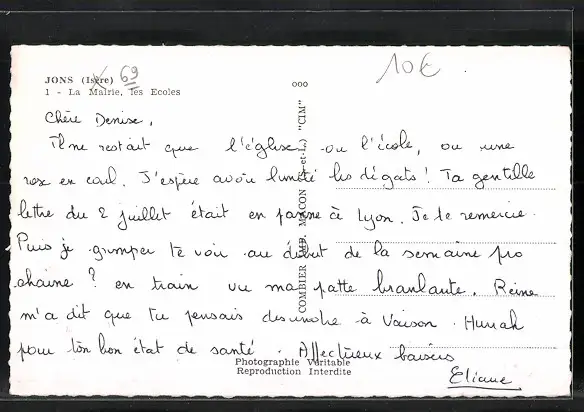 JONS (Isère) 69
1 - La Mairie, les Ecoles
10€
Chère Denise,
Il ne restait que l'église ou l'école, ou une
rose en coul. J'espère avoir limité les dégats ! Ta gentille
lettre du 2 juillet était en panne à Lyon. Je te remercie.
Puis je grimper te voir au début de la semaine pro
chaine ? en train vu ma patte branlante. Reine
m'a dit que tu pensais descendre à Vaison. Hurrah
pour ton bon état de santé. Affectueux baisers
Eliane
COMBIER IMP. MACON (S-et-L.) "CIM"
Photographie Véritable
Reproduction Interdite